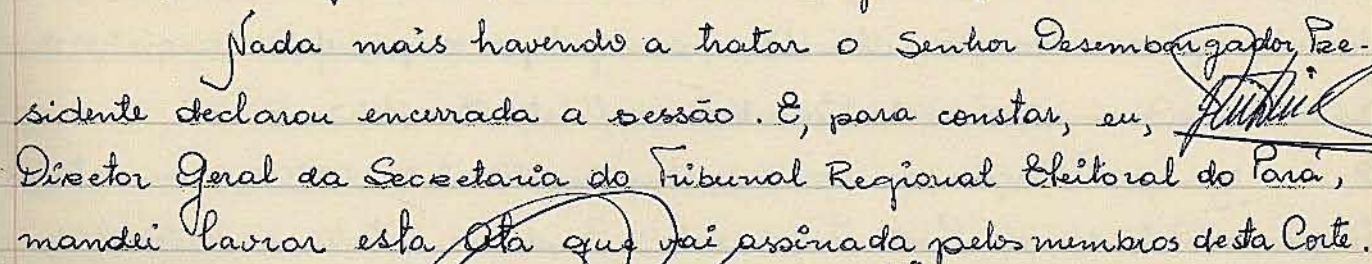 Nada mais havendo a tratar o Senhor Desembargador Pre-
sidente declarou encerrada a sessão. E, para constar, eu,
Diretor Geral da Secretaria do Tribunal Regional Eleitoral do Pará,
mandei lavrar esta Ata que vai assinada pelos membros desta Corte.